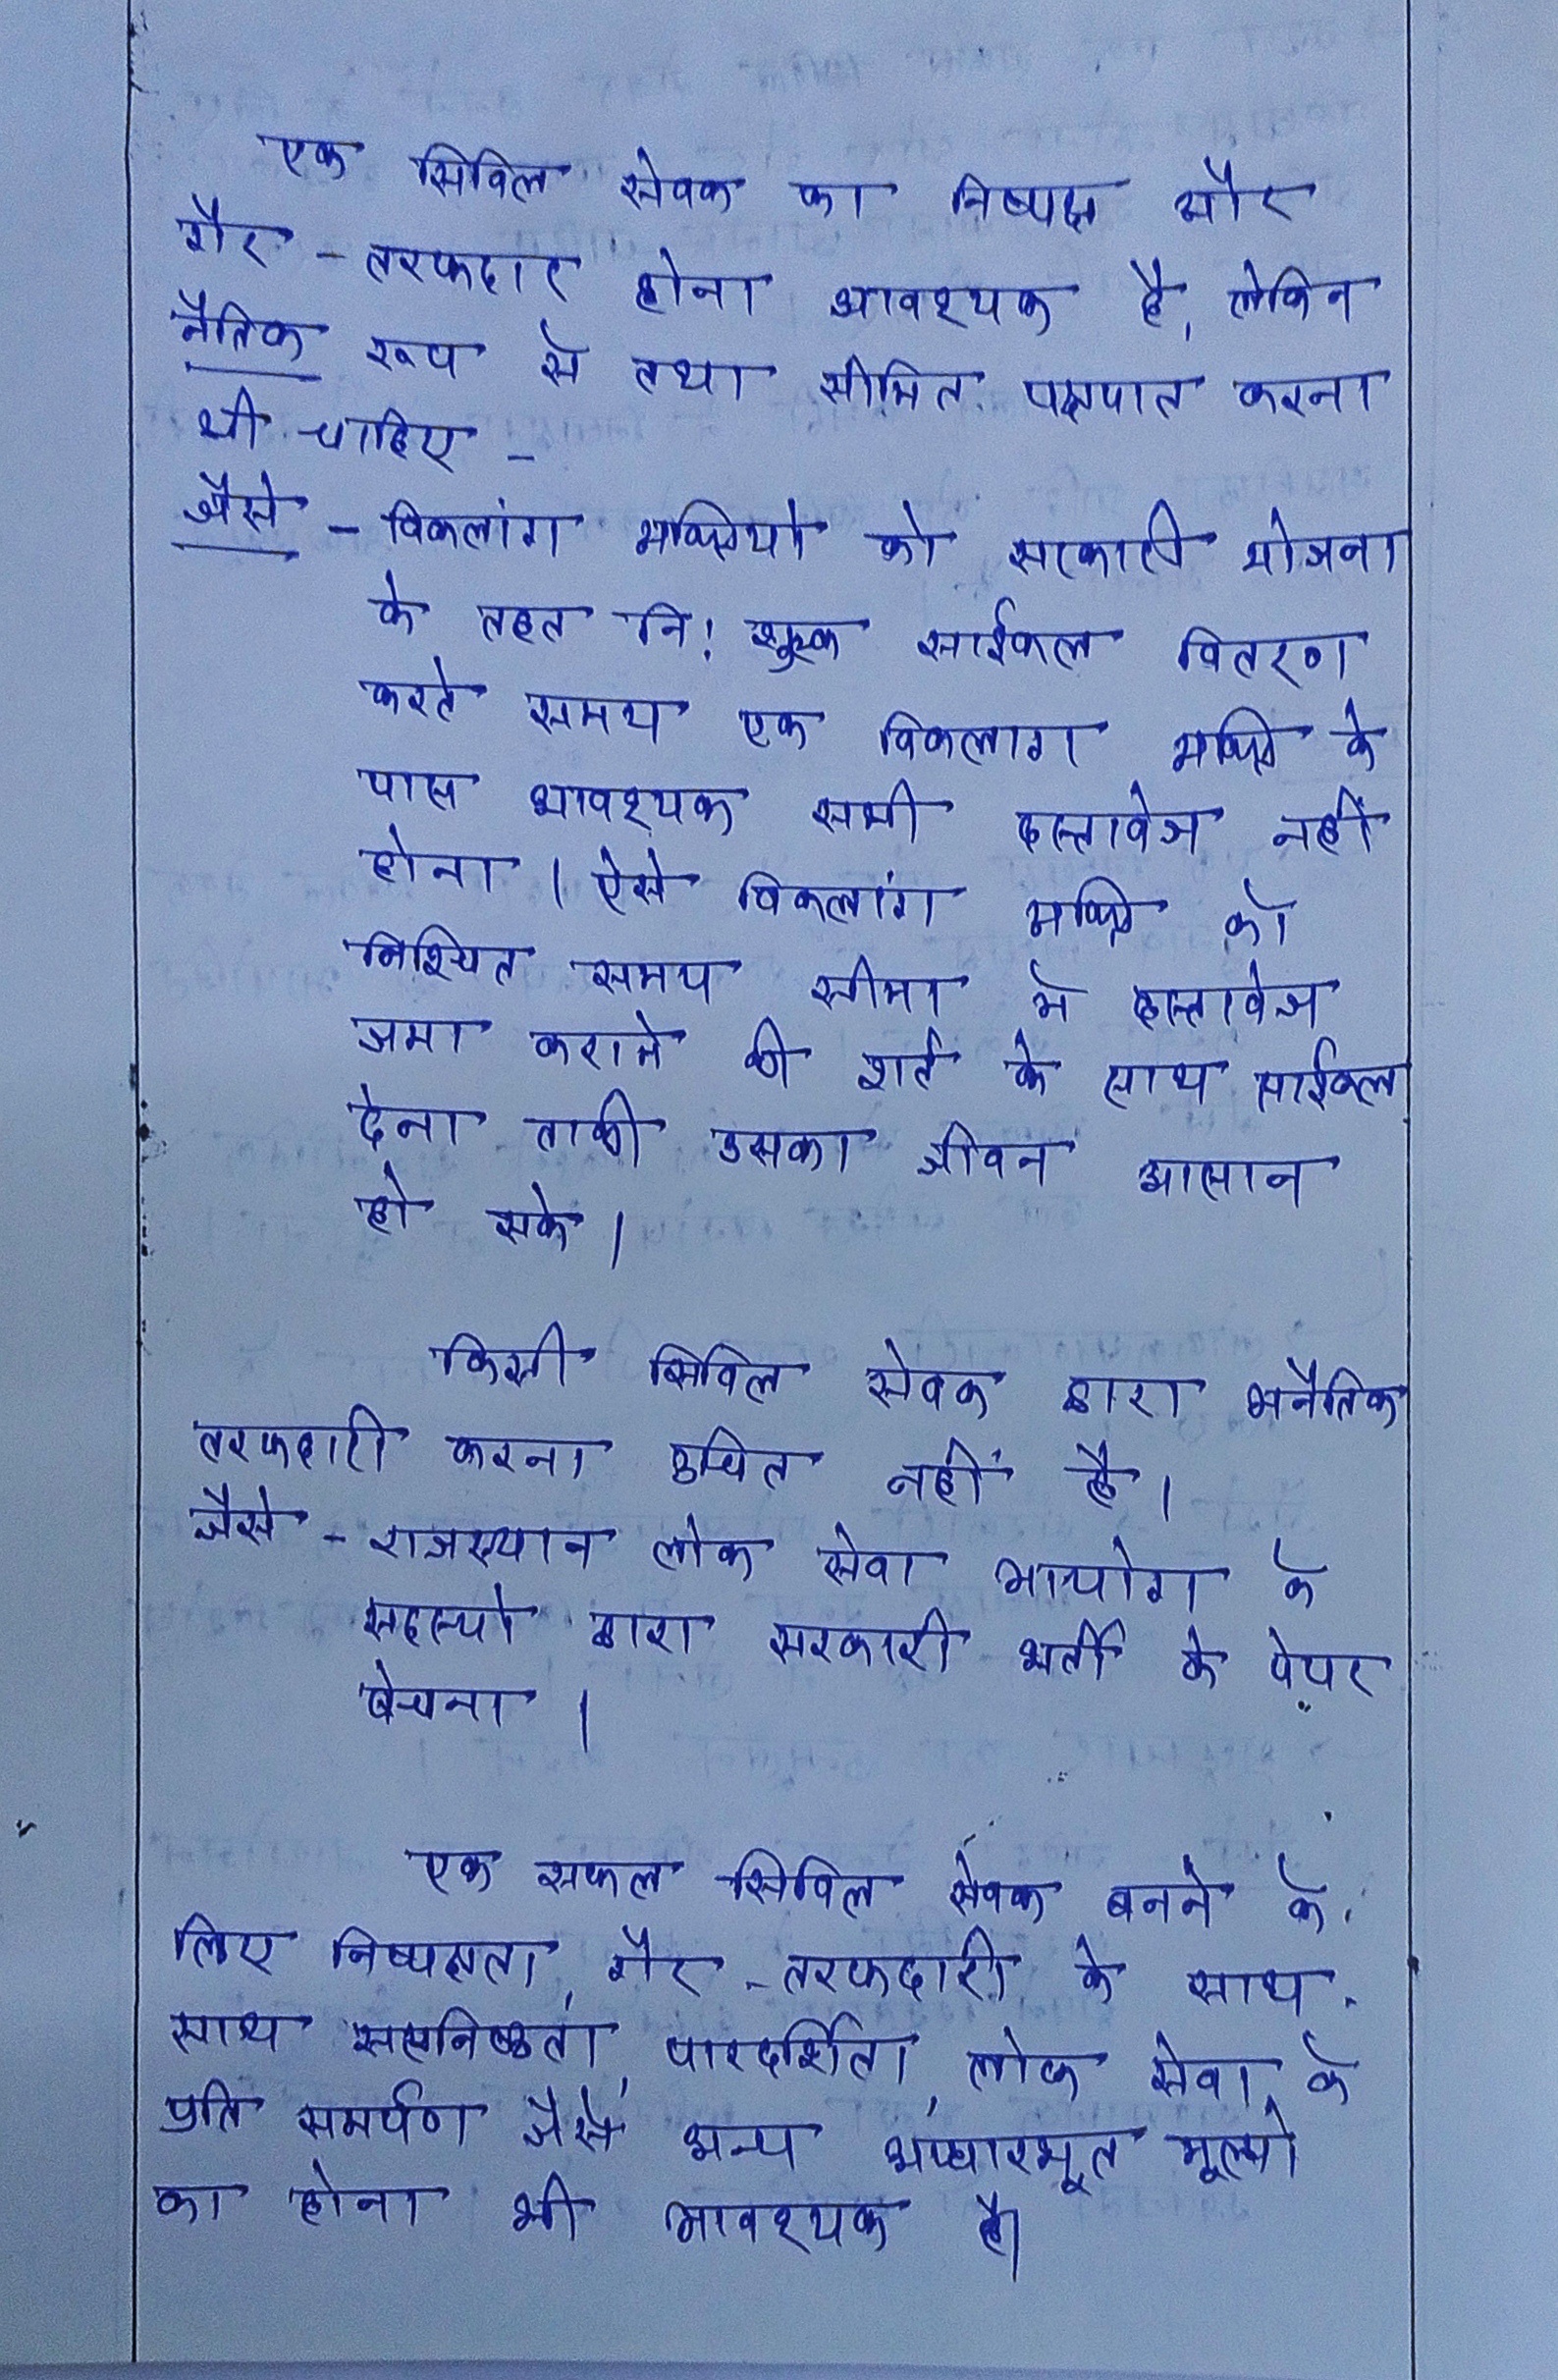 एक सिविल सेवक का निष्पक्ष और
गैर-तरफदार होना आवश्यक है, लेकिन
नैतिक रूप से तथा सीमित पक्षपात करना
भी चाहिए -
जैसे - विकलांग व्यक्तियो को सरकारी योजना
के तहत नि: शुल्क साईकल वितरण
करते समय एक विकलाग व्यक्ति के
पास आवश्यक सभी दस्तावेज नहीं
होना। ऐसे विकलांग व्यक्ति को
निश्चित समय सीमा मे दस्तावेज
जमा कराने की शर्त के साथ साईकल
देना ताकी उसका जीवन आसान
हो सके।
किसी सिविल सेवक द्वारा अनैतिक
तरफदारी करना उचित नहीं है।
जैसे - राजस्थान लोक सेवा आयोग के
सदस्यो द्वारा सरकारी भर्ती के पेपर
बेचना।
एक सफल सिविल सेवक बनने के
लिए निष्पक्षता, गैर-तरफदारी के साथ-
साथ सत्यनिष्ठता, पारदर्शिता, लोक सेवा के
प्रति समर्पण जैसे अन्य आधारभूत मूल्यो
का होना भी आवश्यक है।